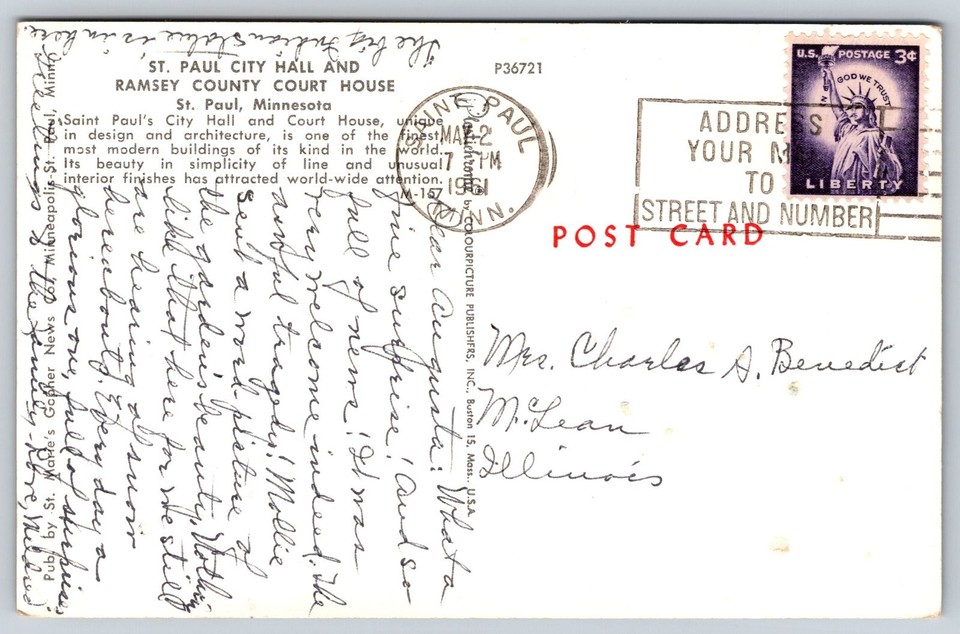 The big Indian Statue is in here.
ST. PAUL CITY HALL AND
RAMSEY COUNTY COURT HOUSE
St. Paul, Minnesota
Saint Paul's City Hall and Court House, unique
in design and architecture, is one of the finest
most modern buildings of its kind in the world.
Its beauty in simplicity of line and unusual
interior finishes has attracted world-wide attention.
P36721
SAINT PAUL
MAR 2
7 PM
1961
MINN.
ADDRESS
YOUR M
TO
STREET AND NUMBER
U.S. POSTAGE 3¢
IN GOD WE TRUST
LIBERTY
POST CARD
by COLOURPICTURE PUBLISHERS, INC., Boston 15, Mass., U.S.A.
Pub. by St. Marie's Gopher News Co., Minneapolis-St. Paul, Minn.
Dear Augusta: What a
fine surprise! And so
full of news! It was
very welcome indeed. The
awful tragedy! Mollie
sent a word picture of
the gardens beauty. Nothing
like that here for we still
are hearing of snow
hereabouts. Every day a
glorious one, full of surprises
of the family - Love, Mildred
Mrs. Charles A. Benedict
McLean
Illinois